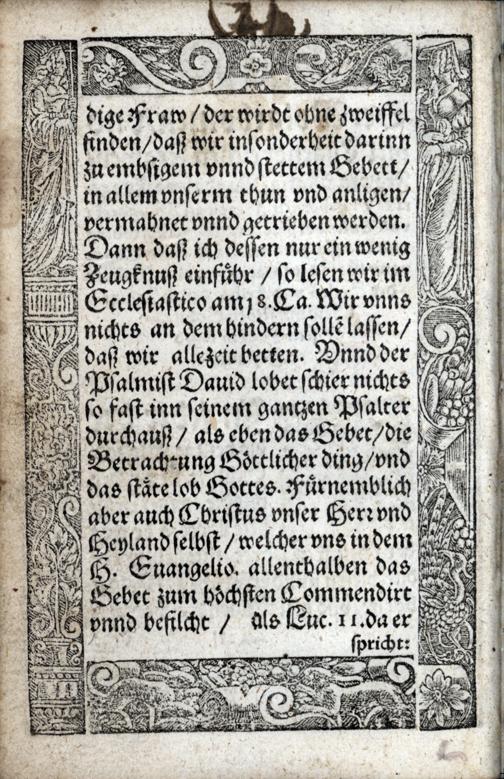 dige Fraw / der wirdt ohne zweiffel
finden / daß wir insonderheit darinn
zu embsigem vnnd stettem Gebett /
in allem vnserm thun vnd anligen /
vermahnet vnnd getrieben werden.
Dann daß ich dessen nur ein wenig
Zeugknuß einführ / so lesen wir im
Ecclesiastico am 18. Ca. Wir vnns
nichts an dem hindern sollē lassen /
daß wir allezeit betten. Vnnd der
Psalmist Dauid lobet schier nichts
so fast inn seinem gantzen Psalter
durchauß / als eben das Gebet / die
Betrachtung Göttlicher ding / vnd
das stäte lob Gottes. Fürnemblich
aber auch Christus vnser Herr vnd
Heyland selbst / welcher vns in dem
H. Euangelio. allenthalben das
Gebet zum höchsten Commendirt
vnnd befilcht / Als Luc. 11. da er
spricht: